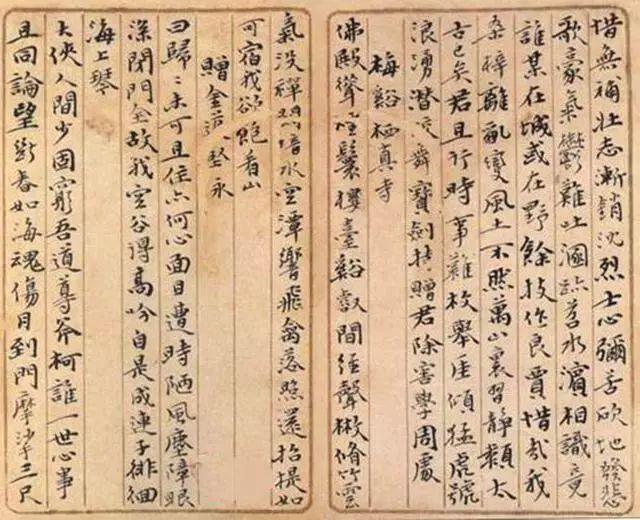 惜無補壯志漸銷沈烈士心彌苦砍地發悲
歌豪氣鬱難吐溷跡苕水濱相識竟
誰某在城或在野餘技作良賈惜哉我
桑梓離亂變風土不照萬山裏習靜類太
古已矣君且行時事難枚舉崖傾猛虎號
浪湧潛蛟舞寶劍持贈君除害學周處
梅谿栖真寺
佛殿聳螺鬟樓臺谿敾間經聲散脩竹雲
氣没禪關積水空潭響飛禽落照還招提如
可宿我欲飽看山
贈金
曰歸歸未可且住亦何心面目遭時陋風塵障眼
深閉門全故我空谷得高吟自是成連子徘徊
海上琴
大俠人間少固窮吾道尊斧柯誰一世心事
且同論望斷春如海魂傷月到門摩挲三尺